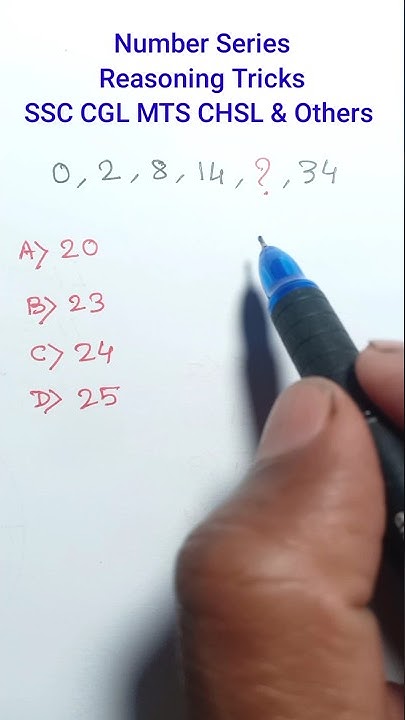 Number Series
Reasoning Tricks
SSC CGL MTS CHSL & Others
0, 2, 8, 14, ?, 34
A) 20
B) 23
C) 24
D) 25